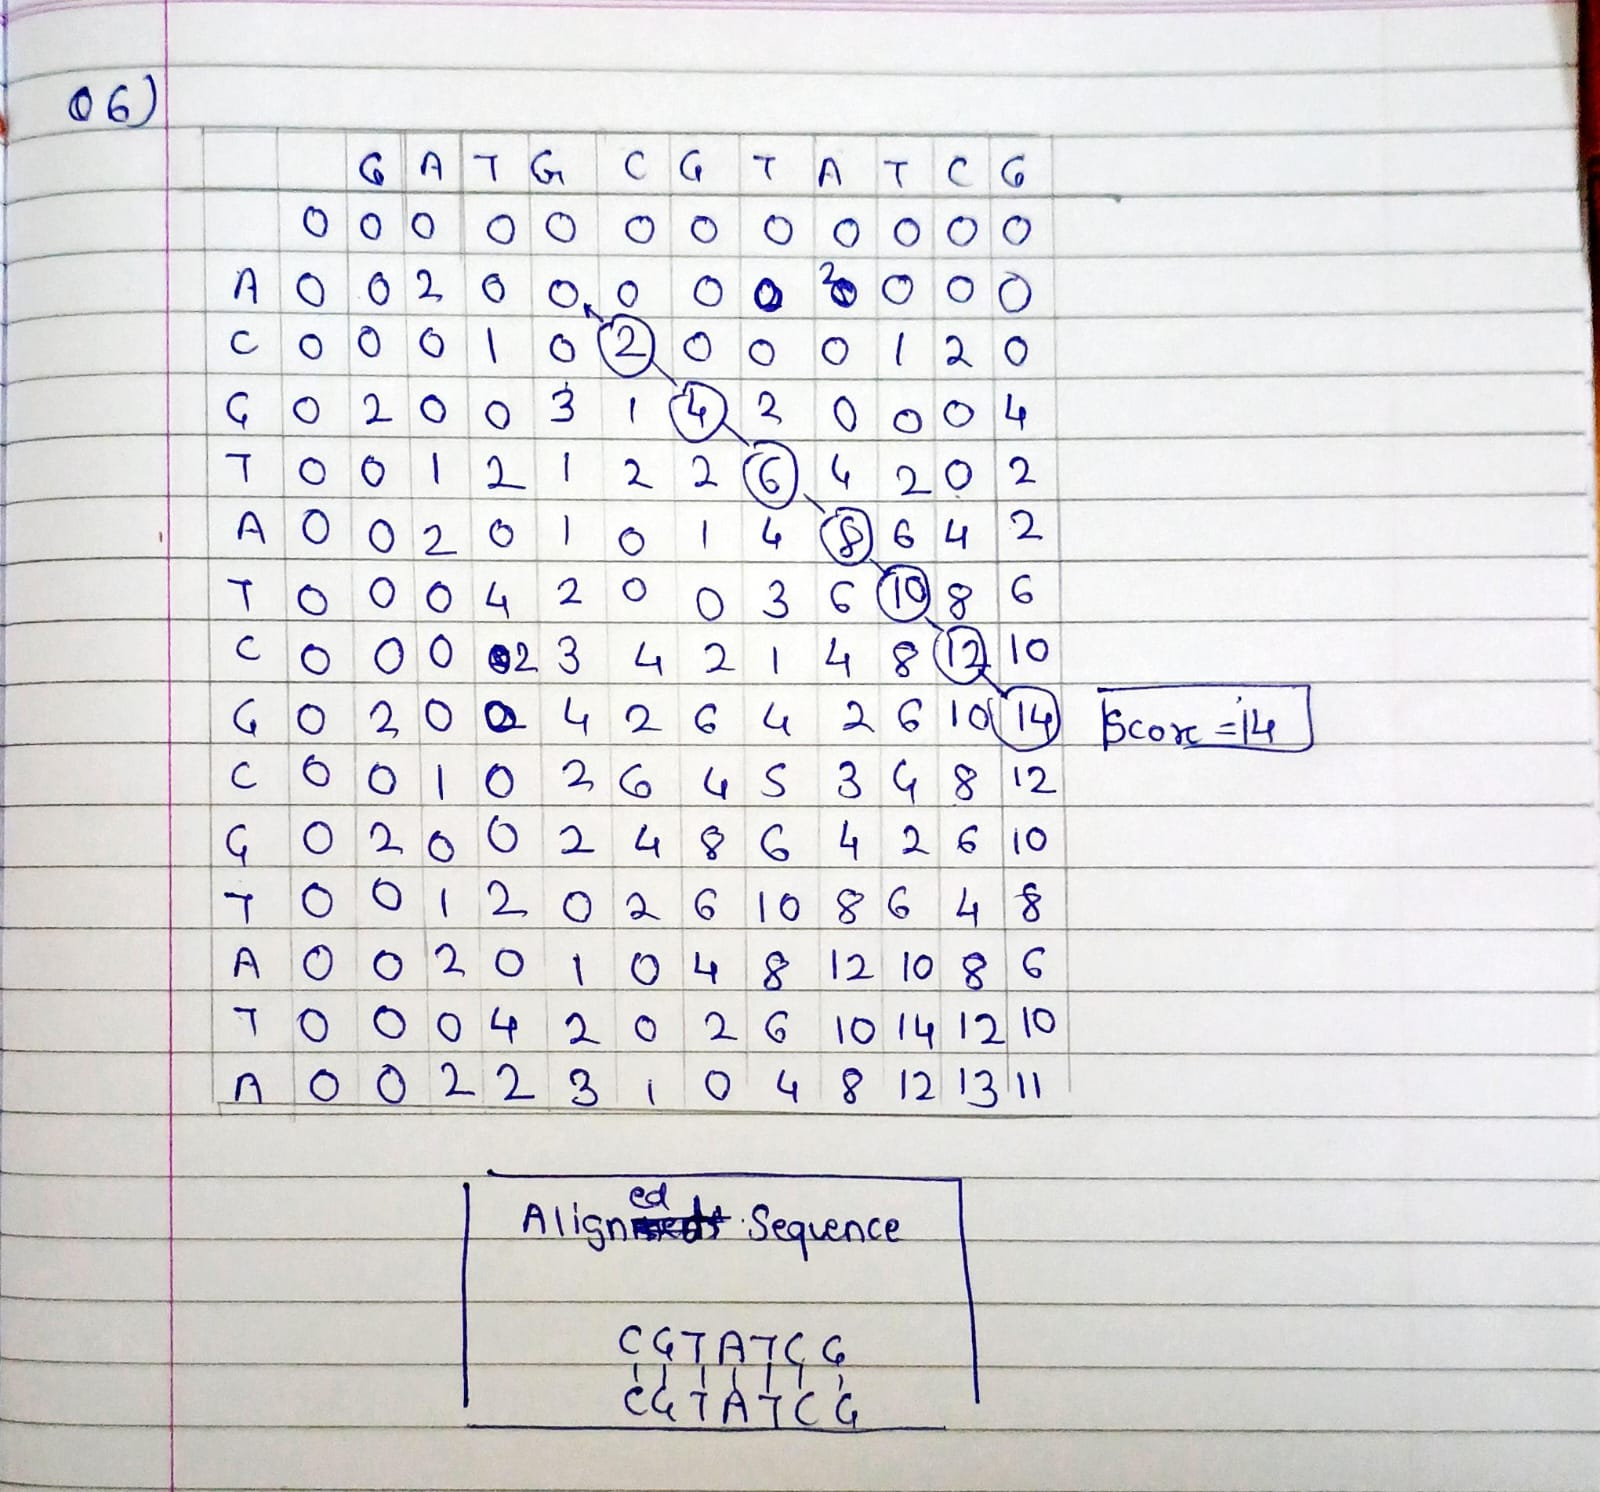 06)
G A T G C G T A T C G
0 0 0 0 0 0 0 0 0 0 0 0
A 0 0 2 0 0 0 0 0 2 0 0 0
C 0 0 0 1 0 2 0 0 0 1 2 0
G 0 2 0 0 3 1 4 2 0 0 0 4
T 0 0 1 2 1 2 2 6 4 2 0 2
A 0 0 2 0 1 0 1 4 8 6 4 2
T 0 0 0 4 2 0 0 3 6 10 8 6
C 0 0 0 2 3 4 2 1 4 8 12 10
G 0 2 0 0 4 2 6 4 2 6 10 14 Score = 14
C 0 0 1 0 2 6 4 5 3 4 8 12
G 0 2 0 0 2 4 8 6 4 2 6 10
T 0 0 1 2 0 2 6 10 8 6 4 8
A 0 0 2 0 1 0 4 8 12 10 8 6
T 0 0 0 4 2 0 2 6 10 14 12 10
A 0 0 2 2 3 1 0 4 8 12 13 11
Aligned Sequence
CGTATCG
CGTATCG